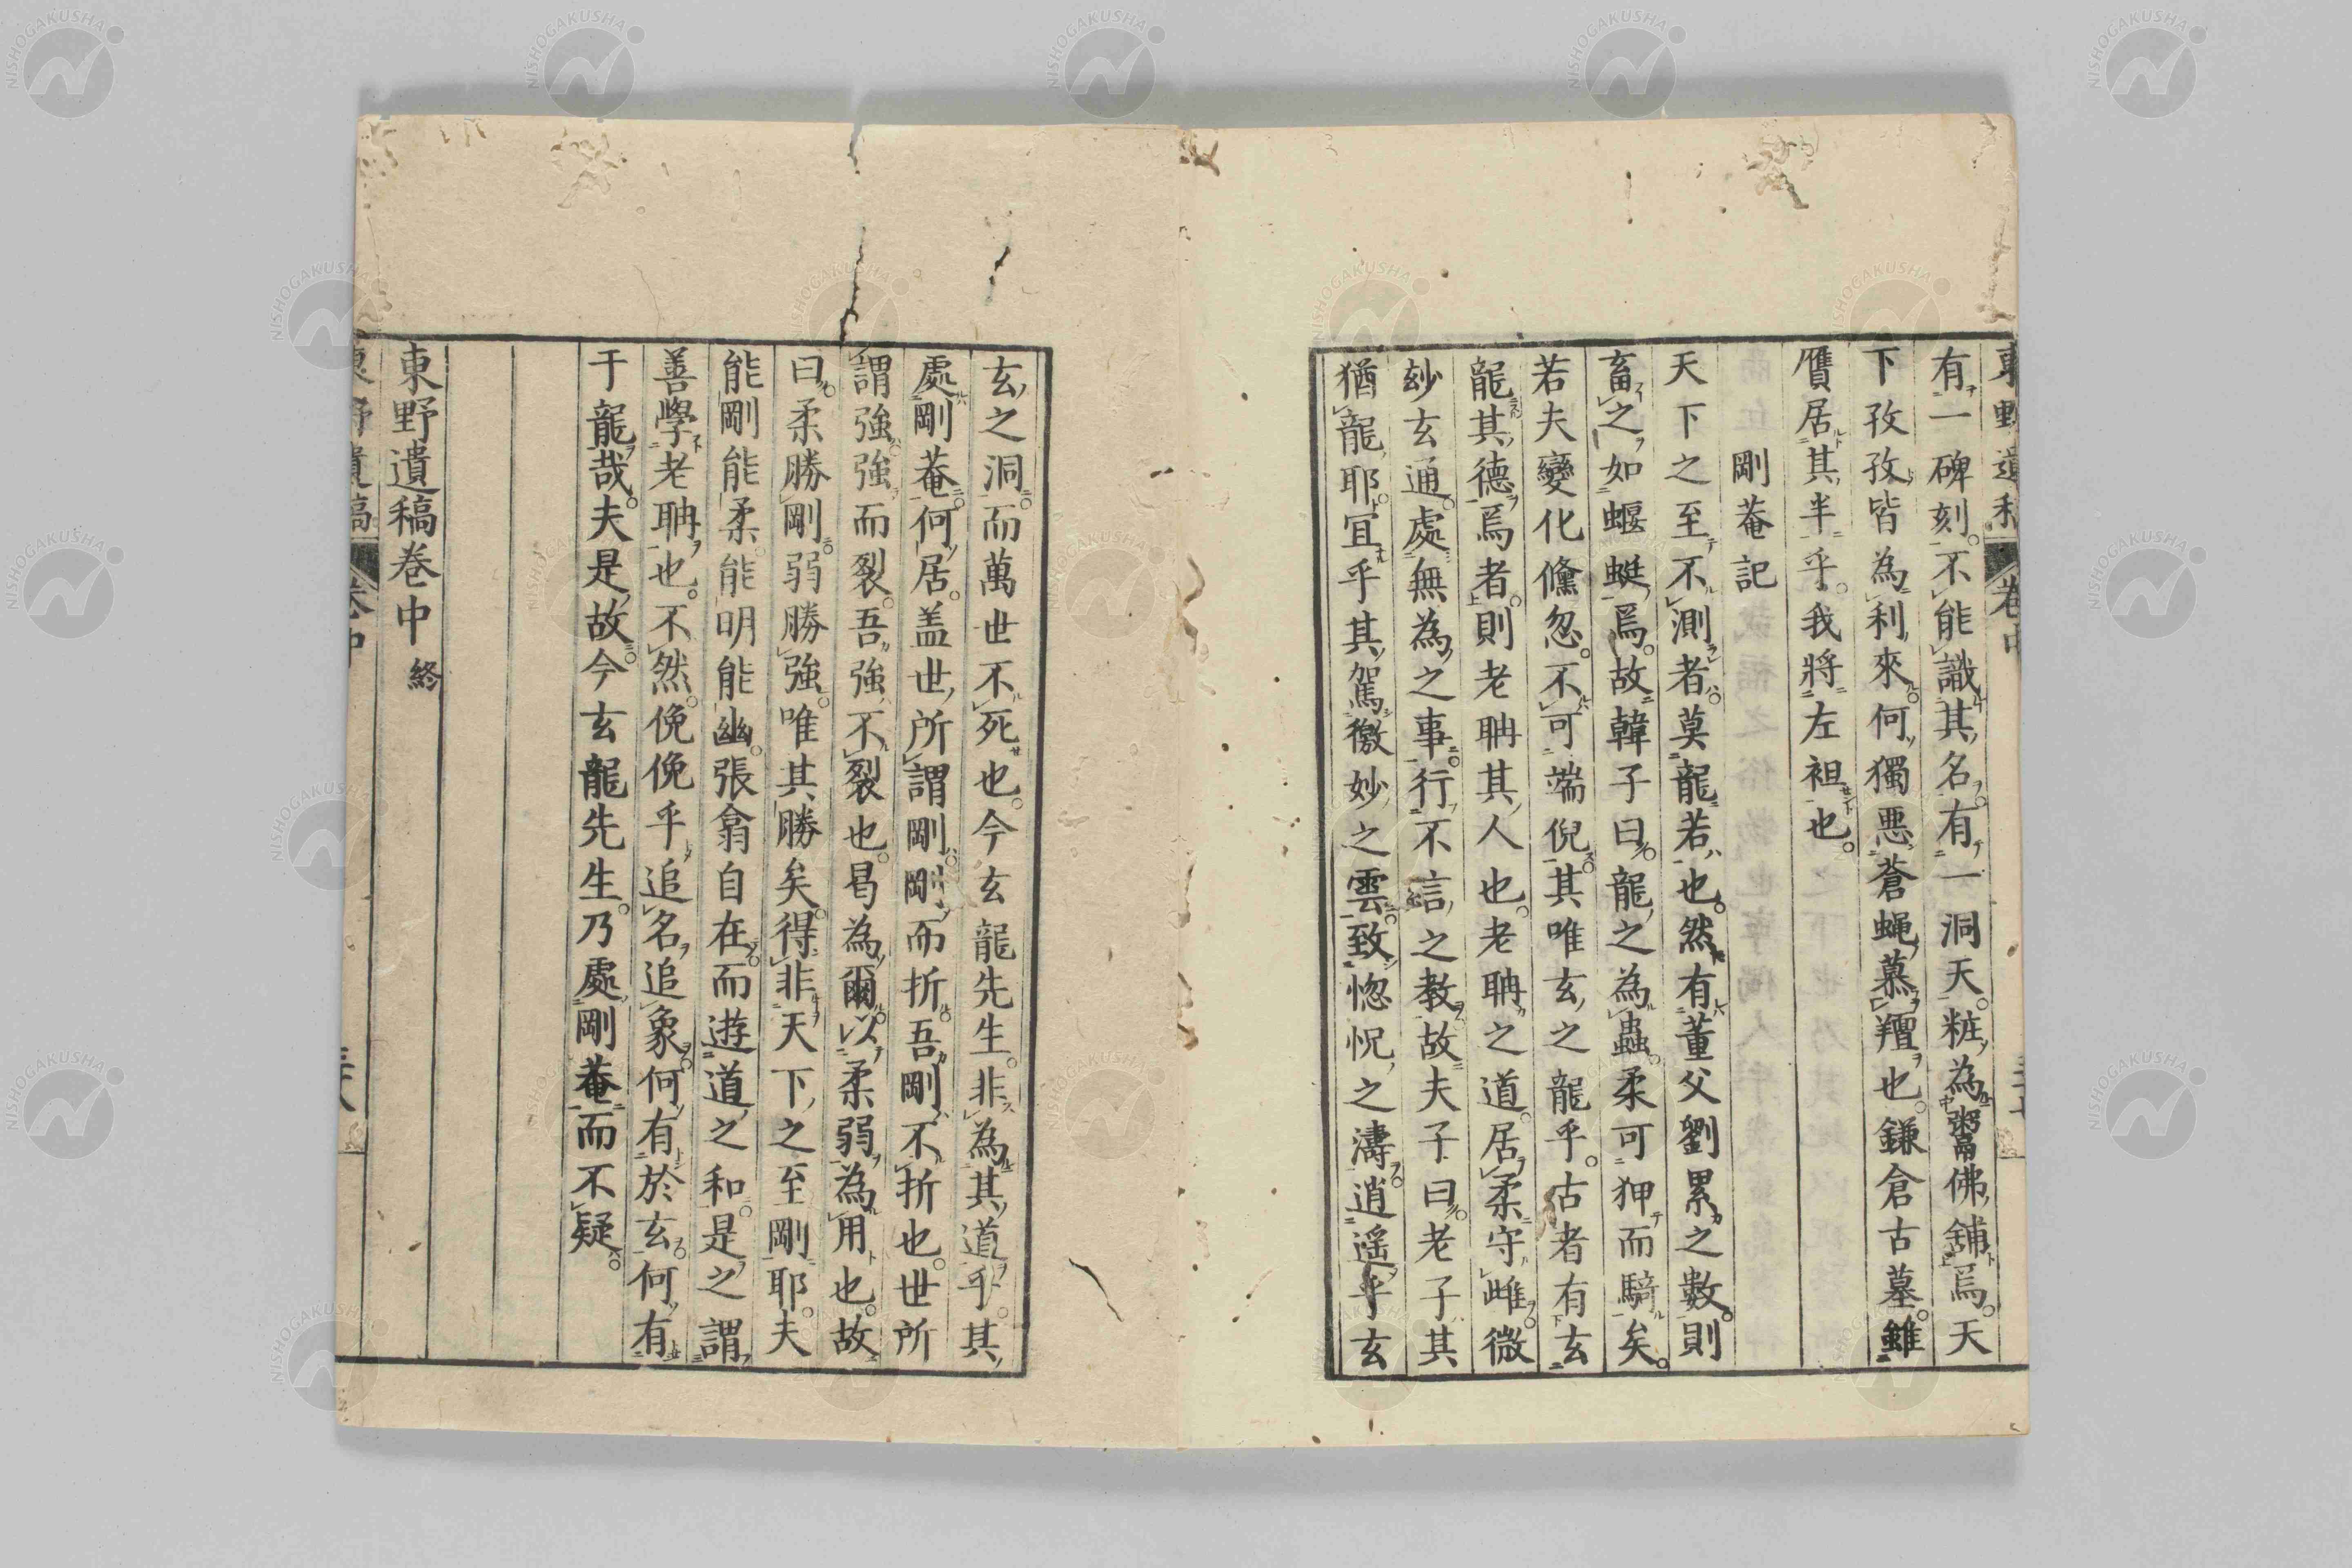 有一碑刻。不能識其名。有一洞天。粧為粥佛舖焉。天
下孜孜皆為利來。何獨惡蒼蝿慕羶也。鎌倉古墓。雖
贋居其半乎。我將左袒也。
剛菴記
天下之至不測者。莫龍若也。然有董父劉累之數。則
畜之如蝘蜓焉。故韓子曰。龍之為蟲。柔可狎而騎矣。
若夫變化儵忽。不可端倪。其唯玄之龍乎。古者有玄
龍其德焉者。則老聃其人也。老聃之道。居柔守雌。微
玅玄通。處無為之事。行不言之教。故夫子曰。老子其
猶龍耶。宜乎其駕徽妙之雲。致惚怳之濤。逍遥乎玄
玄之洞。而萬世不死也。今玄龍先生。非為其道乎。其
處剛菴。何居。盖世所謂剛。剛而折。吾剛不折也。世所
謂強。強而裂。吾強不裂也。曷為爾。以柔弱為用也。故
曰。柔勝剛。弱勝強。唯其勝矣。得非天下之至剛耶。夫
能剛能柔。能明能幽。張翕自在。而遊道之和。是之謂
善學老聃也。不然。俛俛乎追名追象。何有於玄。何有
于龍哉。夫是故今玄龍先生。乃處剛菴而不疑。
東野遺稿巻中 終
東野遺稿 巻中